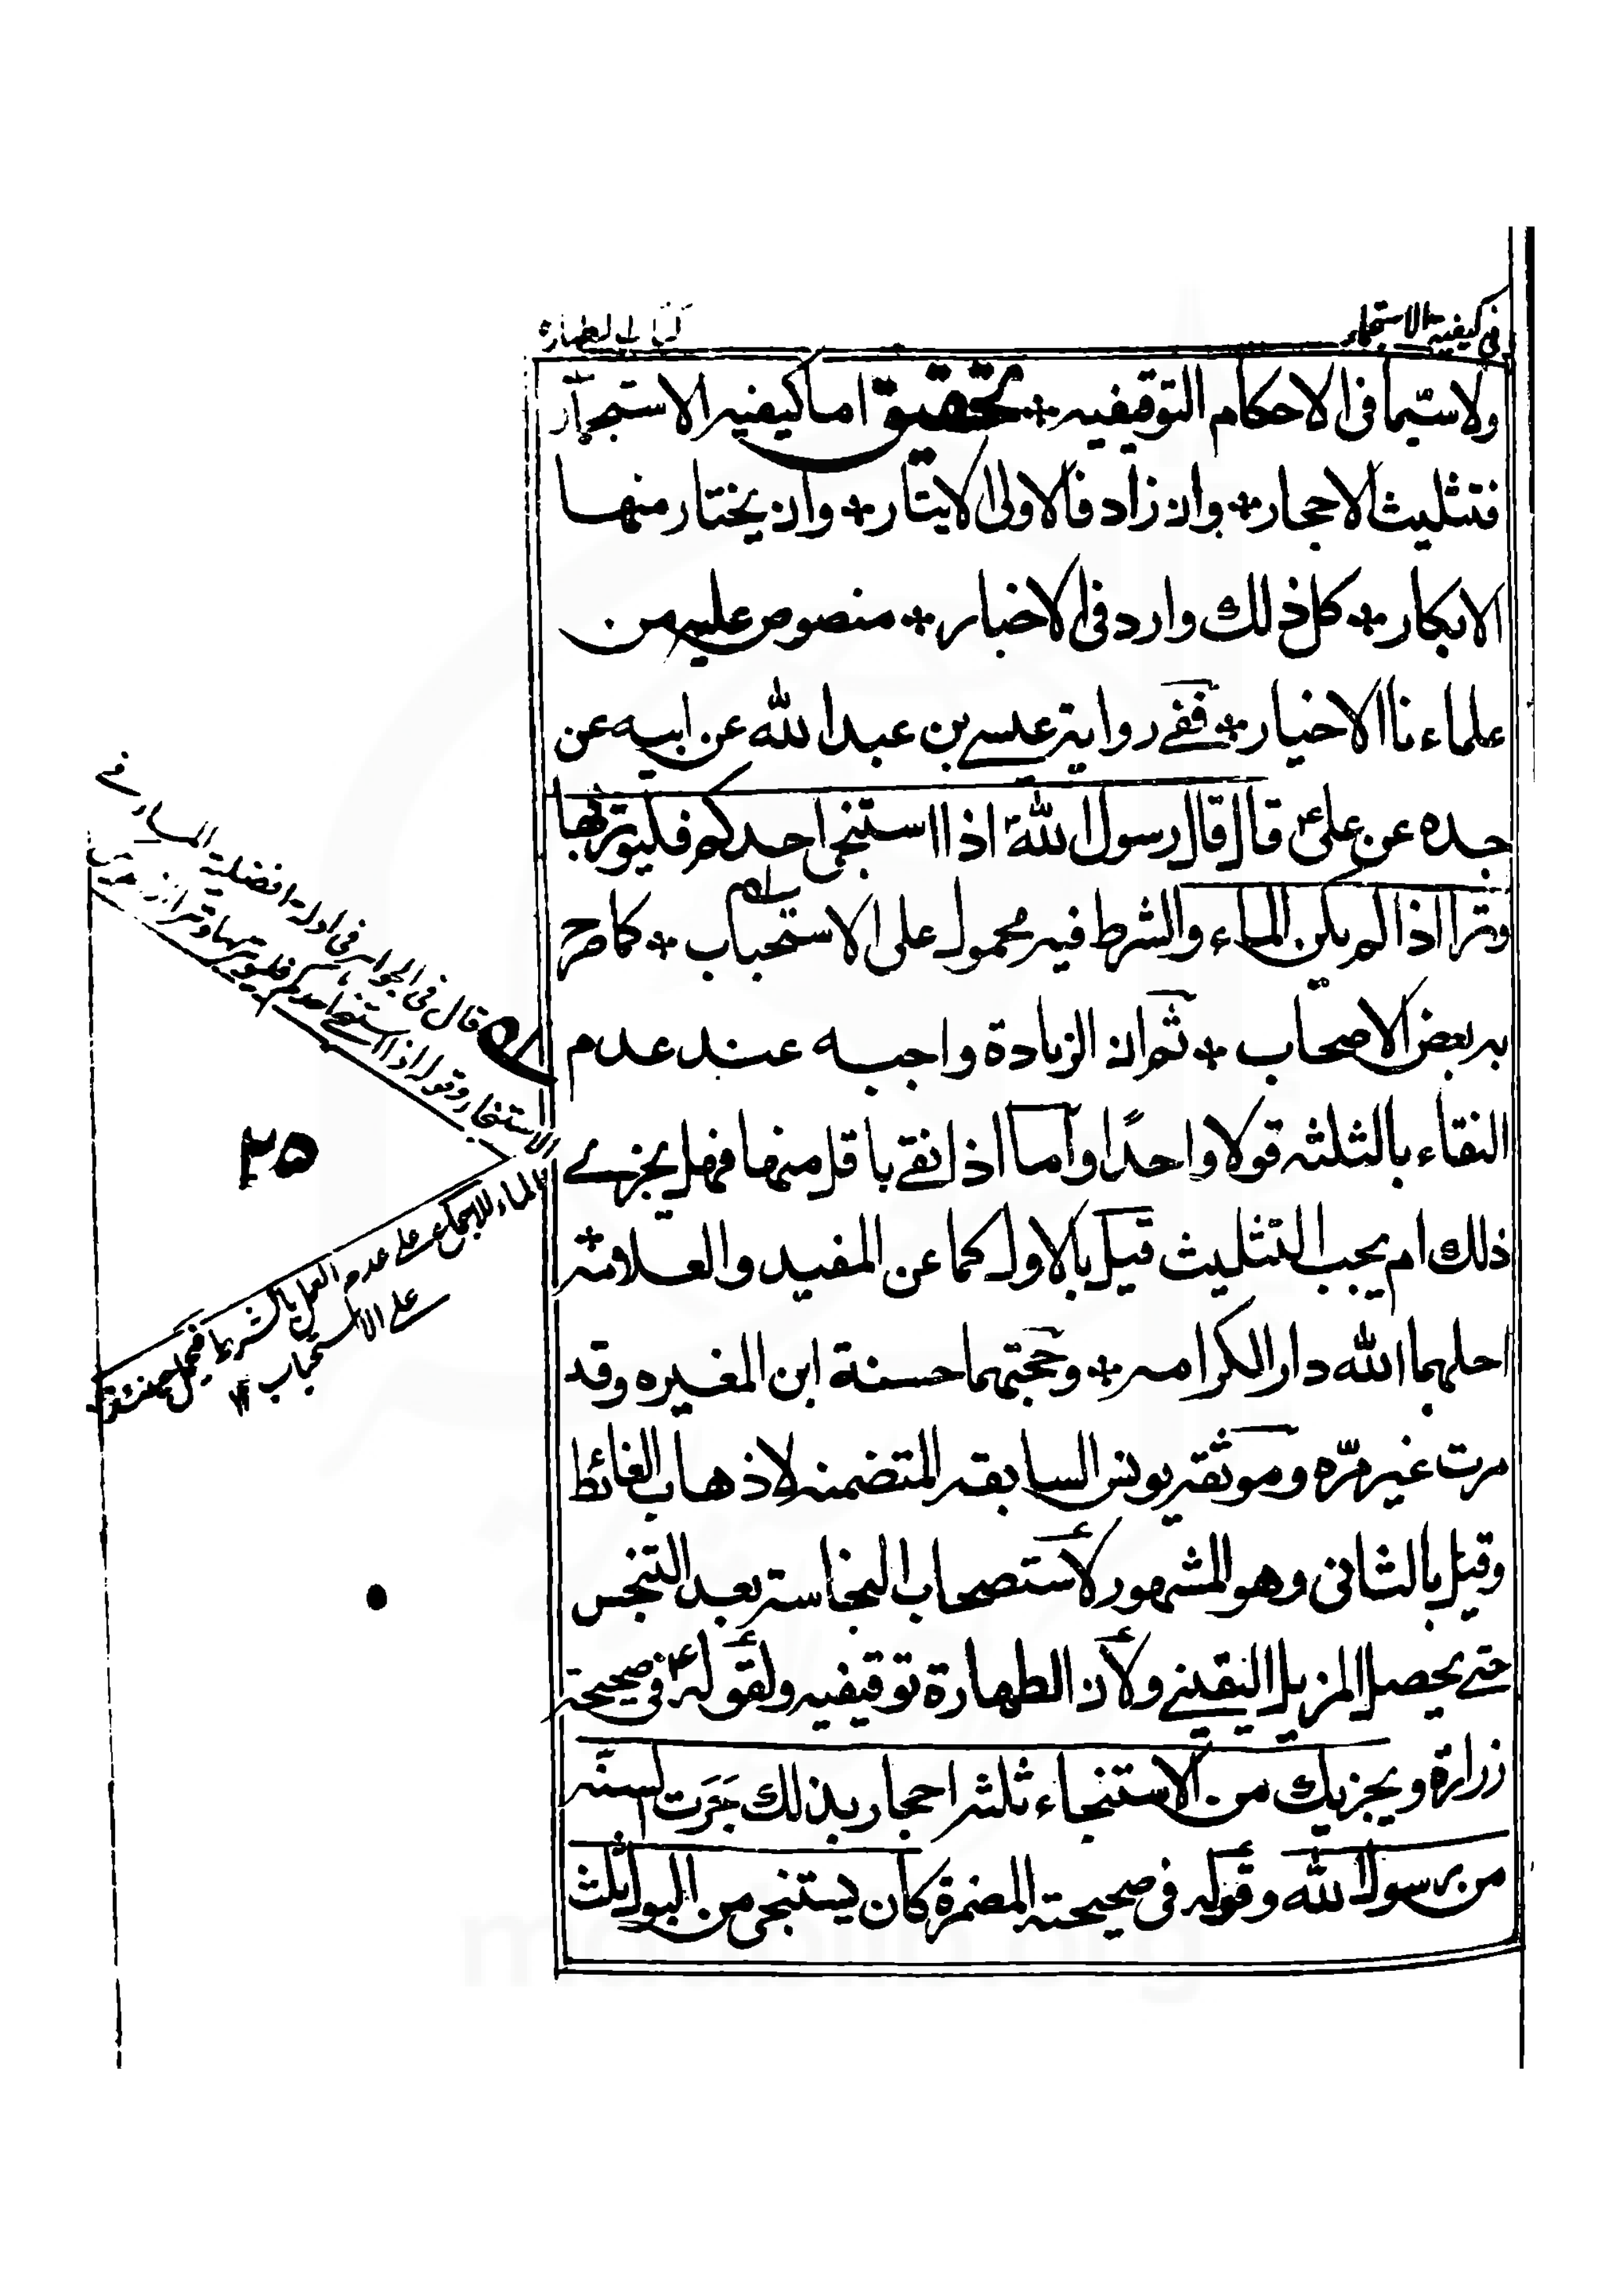 في كيفية الاستجمار
كتاب الطهارة
ولا سيّما في الاحكام التوقيفيه * تحقيق اما كيفيه الاستجمار
فتثليث الاحجار * وان زاد فالاولى الايتار * وان يختار منها
الابكار * كل ذلك وارد في الاخبار * منصوص عليه من
علماءنا الاخيار * ففي رواية عيسى بن عبد الله عن ابيه عن
جده عن علىؑ قال قال رسول اللهؐ اذا استنجى احدكم فليوتر بها
وترا اذا لم يكن الماء والشرط فيه محمول على الاستحباب * كما صرح
به بعض الاصحاب * ثم ان الزيادة واجبه عند عدم
النقاء بالثلثه قولا واحدًا واما اذا نقى باقل منها فهل يجزى
ذلك ام يجب التثليث قيل بالاول كما عن المفيد والعلامه *
احلهما الله دار الكرامه * وحجتهما حسنة ابن المغيره وقد
مرت غير مرّه وموثقه يونس السابقه المتضمنه لاذهاب الغائط
وقيل بالثانى وهو المشهور لاستصحاب النجاسة بعد التنجس
حتى يحصل المزيل اليقينى ولأن الطهارة توقيفيه ولقولهؑ في صحيحة
زرارة ويجزيك من الاستنجاء ثلثه احجار بذلك جَرَت السنّه
من رسول الله وقوله في صحيحته المضمرة كان يستنجى من البول ثلث
قال في الجواهر في ادلة افضلية الماء في
الاستنجاء وقوله اذا استنجى احدكم فليوتر بها وترا اذا لم يكن
الماء للاجماع على عدم العمل بالشرط
على الاستحباب ١٢
٢٥